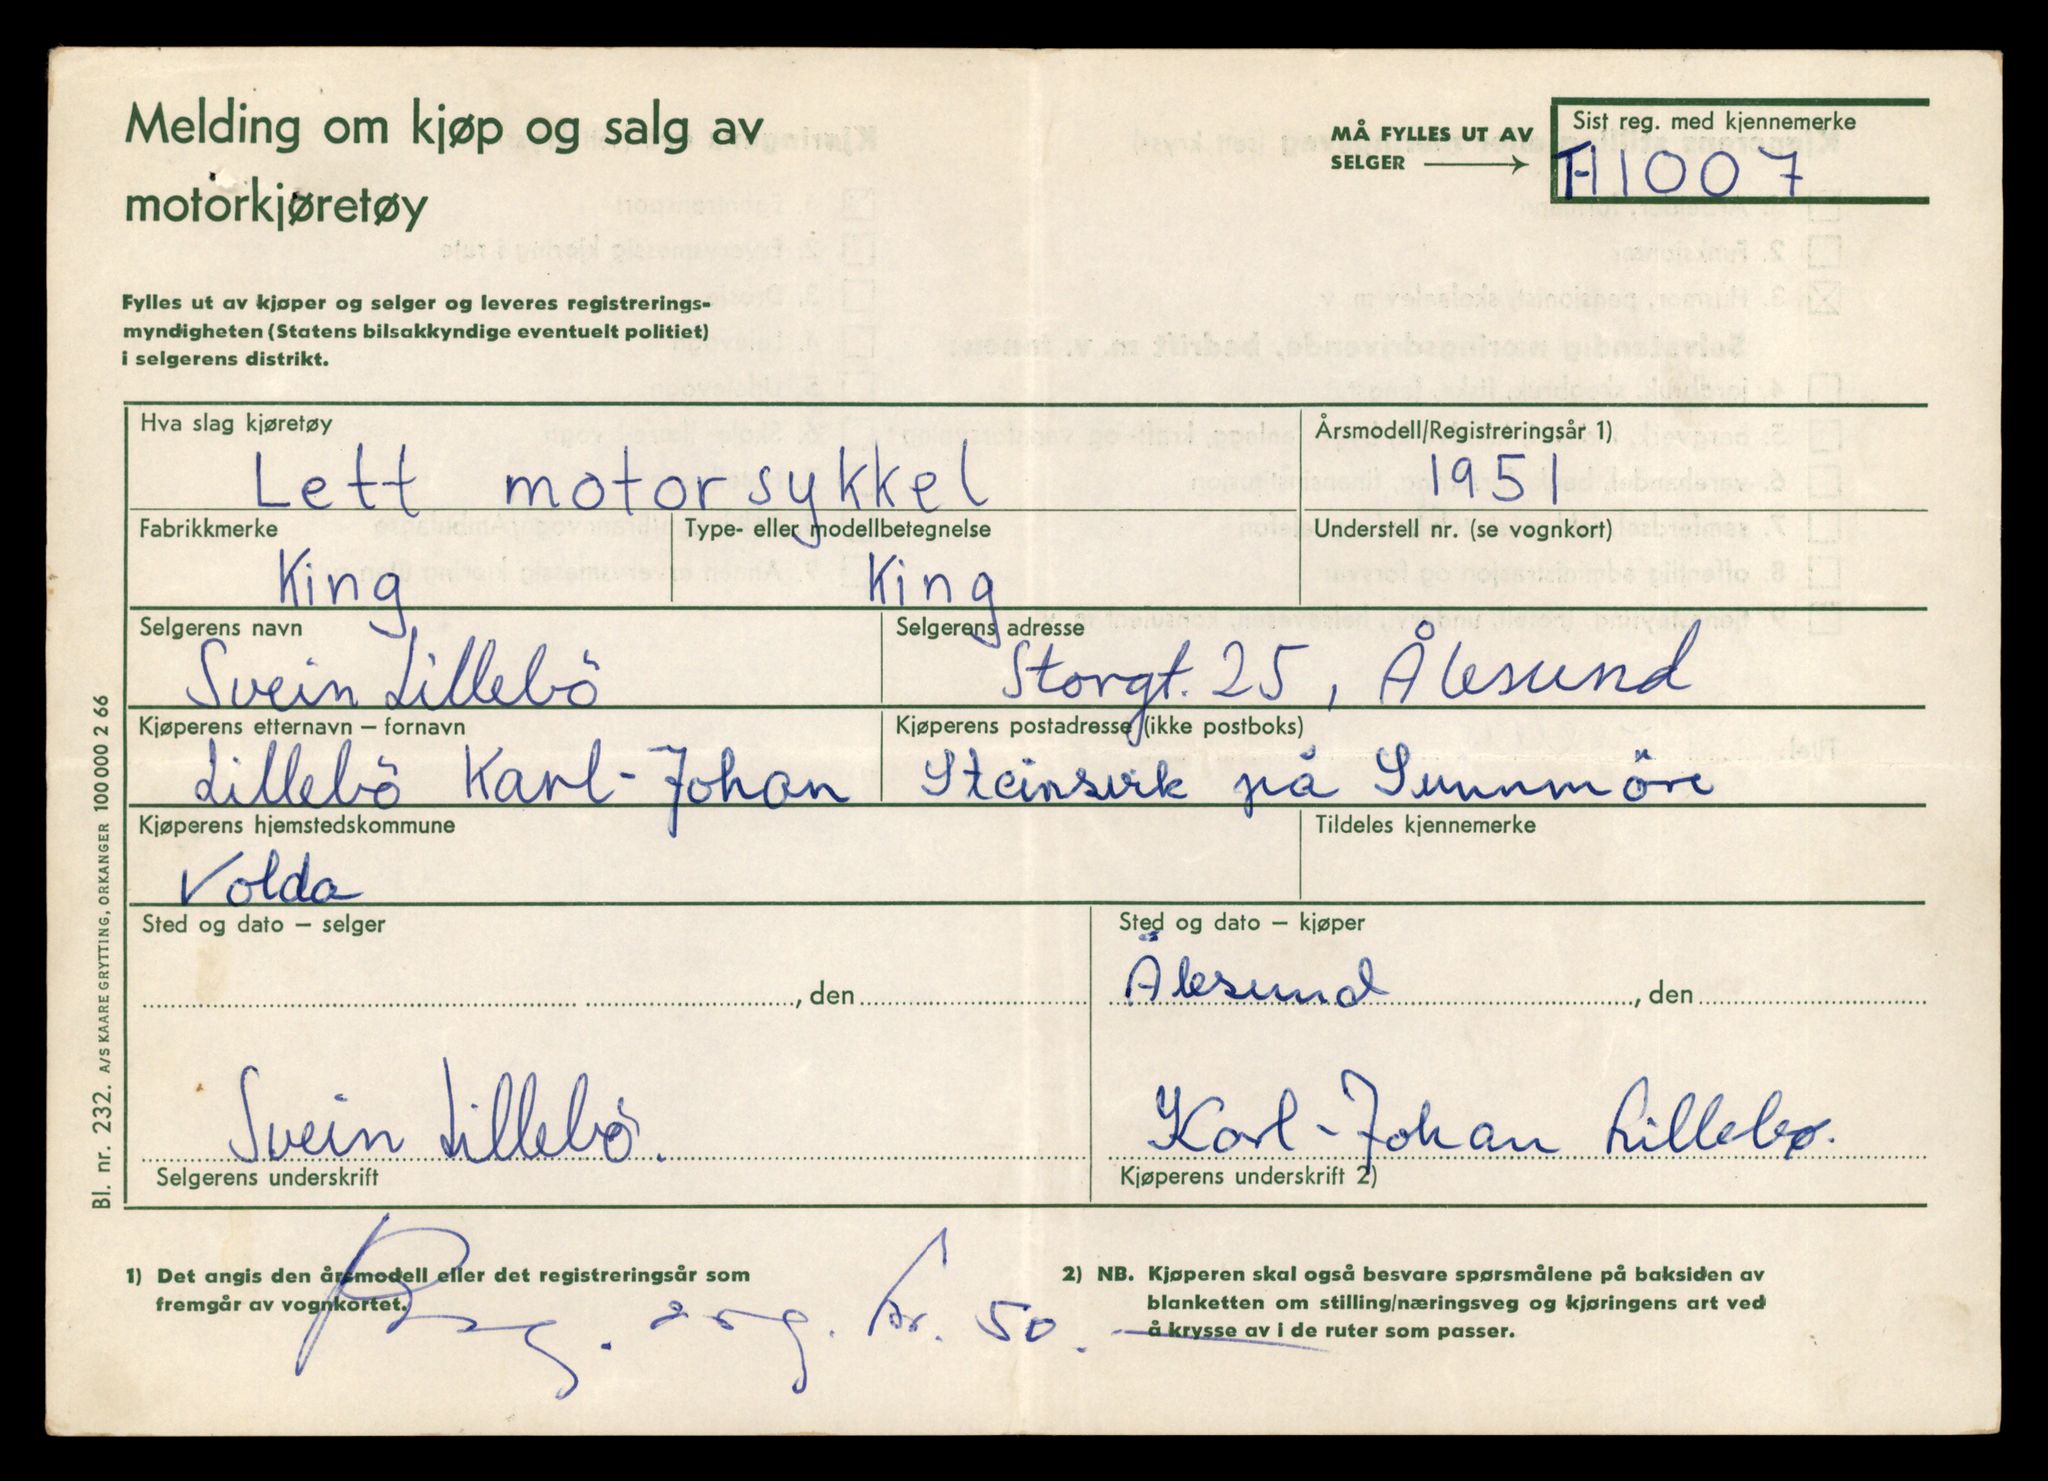 Melding om kjøp og salg av
motorkjøretøy
MÅ FYLLES UT AV
SELGER
Sist reg. med kjennemerke
1007
Fylles ut av kjøper og selger og leveres registrerings-
myndigheten (Statens bilsakkyndige eventuelt politiet)
i selgerens distrikt.
Hva slag kjøretøy
Lett motorsykkel
Årsmodell/Registreringsår 1)
1951
Fabrikkmerke
King
Type- eller modellbetegnelse
King
Understell nr. (se vognkort)
Selgerens navn
Svein Lillebö
Selgerens adresse
Storgt. 25, Ålesund
Kjøperens etternavn – fornavn
Lillebö Karl-Johan
Kjøperens postadresse (ikke postboks)
Steinsvik på Sunnmöre
Kjøperens hjemstedskommune
Volda
Tildeles kjennemerke
Sted og dato – selger
, den
Sted og dato – kjøper
Ålesund , den
Svein Lillebö.
Selgerens underskrift
Karl-Johan Lillebø.
Kjøperens underskrift 2)
1) Det angis den årsmodell eller det registreringsår som
fremgår av vognkortet.
2) NB. Kjøperen skal også besvare spørsmålene på baksiden av
blanketten om stilling/næringsveg og kjøringens art ved
å krysse av i de ruter som passer.
kr. 50.
Bl. nr. 232. A/S KAARE GRYTTING, ORKANGER 100 000 2 66